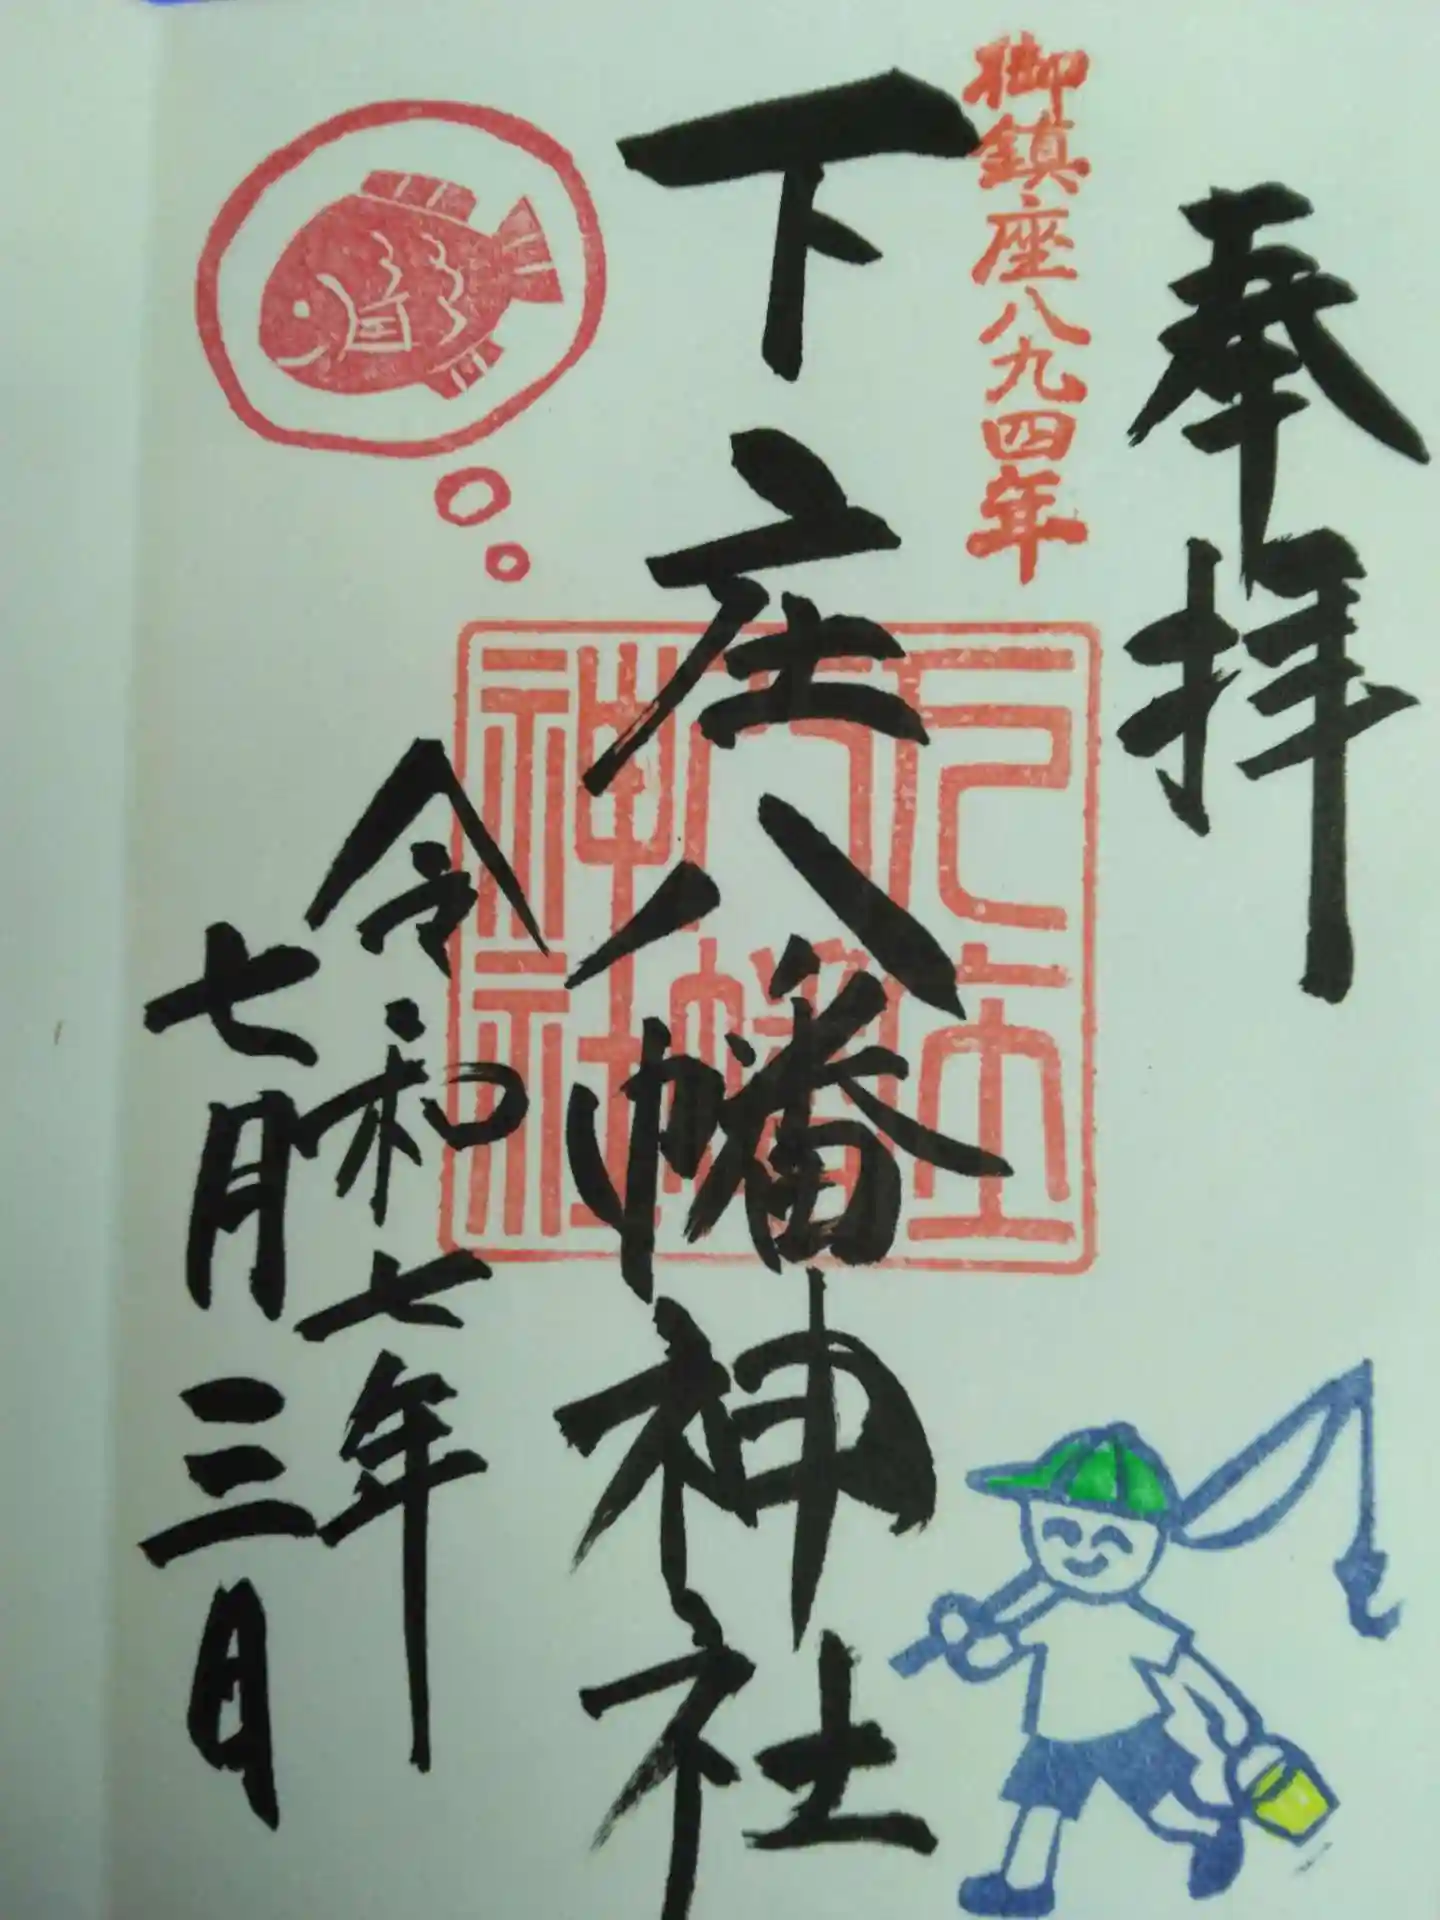 奉拝
御鎮座八九四年
下庄八幡神社
下庄
八幡
神社
令和七年
七月三日